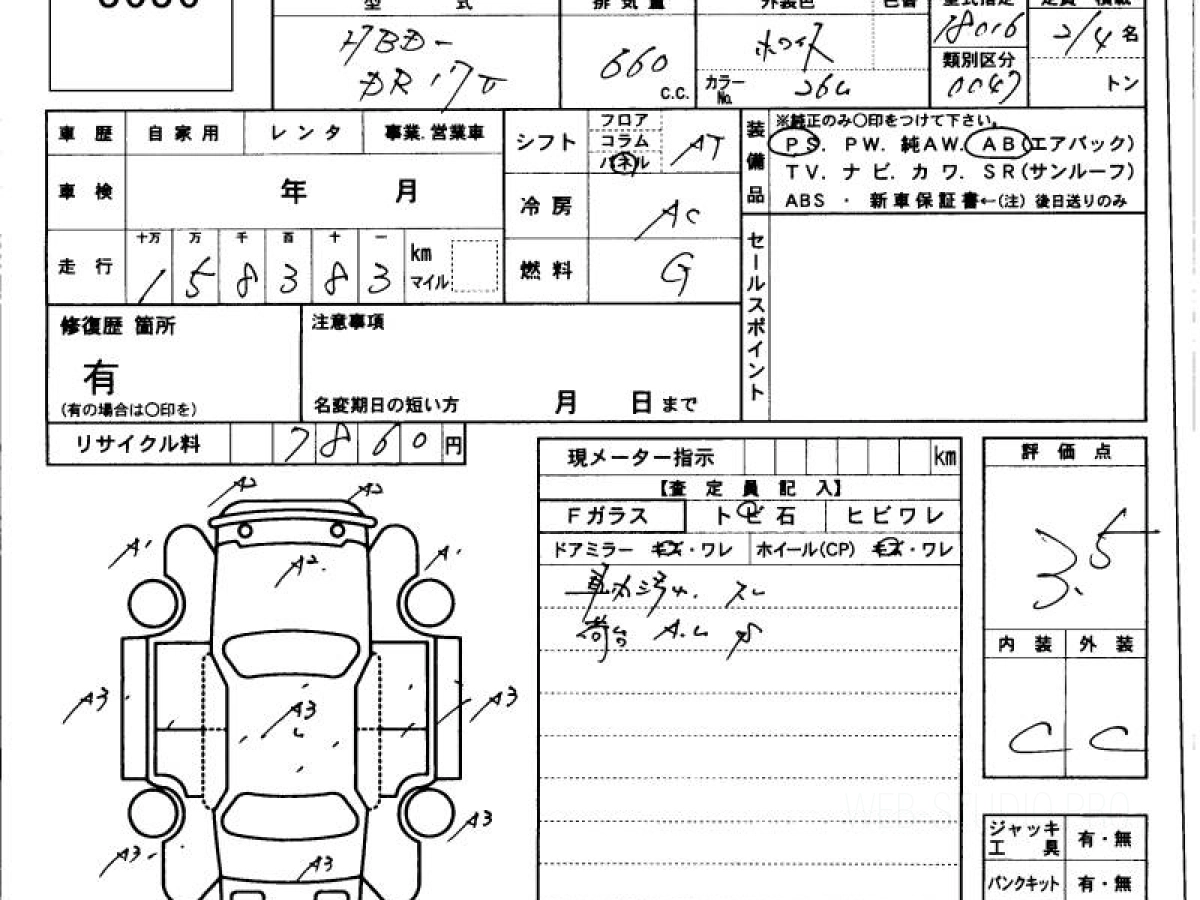 型 式
排 気 量
外装色
色替
型式指定
定員 積載
HBD-
DR17V
660
c.c.
ホワイト
カラー
No.
26U
18016
類別区分
0047
2/4 名
トン
車 歴 自 家 用 レ ン タ 事業. 営業車
車 検 年 月
走 行
十万 万 千 百 十 一
1 5 8 3 8 3
km
マイル
シフト
フロア
コラム
パネル
AT
冷 房
AC
燃 料
G
装備品
※純正のみ〇印をつけて下さい。
PS. PW. 純AW. AB(エアバック)
TV. ナ ビ. カ ワ. SR(サンルーフ)
ABS ・ 新車保証書←(注) 後日送りのみ
セールスポイント
修復歴 箇所
有
(有の場合は〇印を)
注意事項
名変期日の短い方 月 日 まで
リサイクル料 7 8 6 0 円
現メーター指示 km
【査 定 員 記 入】
Fガラス ト ビ 石 ヒ ビ ワ レ
ドアミラー キズ・ワレ ホイール(CP) キズ・ワレ
荷台 A.U
評 価 点
3.5
内 装 外 装
C C
ジャッキ
工 具
有・無
パンクキット 有・無
A2
A2
A1
A1
A2.
A3
A3
A3
A3
A3
A3
WEB-STUDIO.PRO